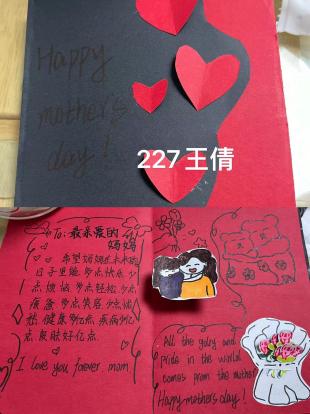 Happy
mother's
day!
227王倩
To: 最亲爱的
妈妈
希望妈妈在未来的
日子里能多点快乐少
点烦恼 多点轻松少点
疲惫 多点笑容少点忧
愁 健康多亿点 疾病少亿
点 皮肤好亿点
I love you forever mom
All the glory and
pride in the world
comes from the mother
Happy mothers day!